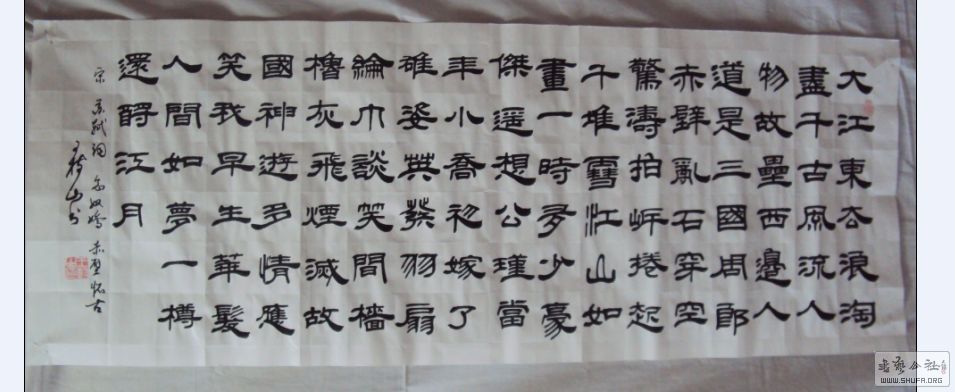 大江東去浪淘
盡千古風流人
物故壘西邊人
道是三國周郎
赤壁亂石穿空
驚濤拍岸捲起
千堆雪江山如
畫一時多少豪
傑遥想公瑾當
年小喬初嫁了
雄姿英發羽扇
綸巾談笑間檣
櫓灰飛煙滅故
國神遊多情應
笑我早生華髮
人間如夢一樽
還酹江月
宋 蘇軾詞 念奴嬌 赤壁懷古
山書
書藝公社
WWW.SHUFA.ORG